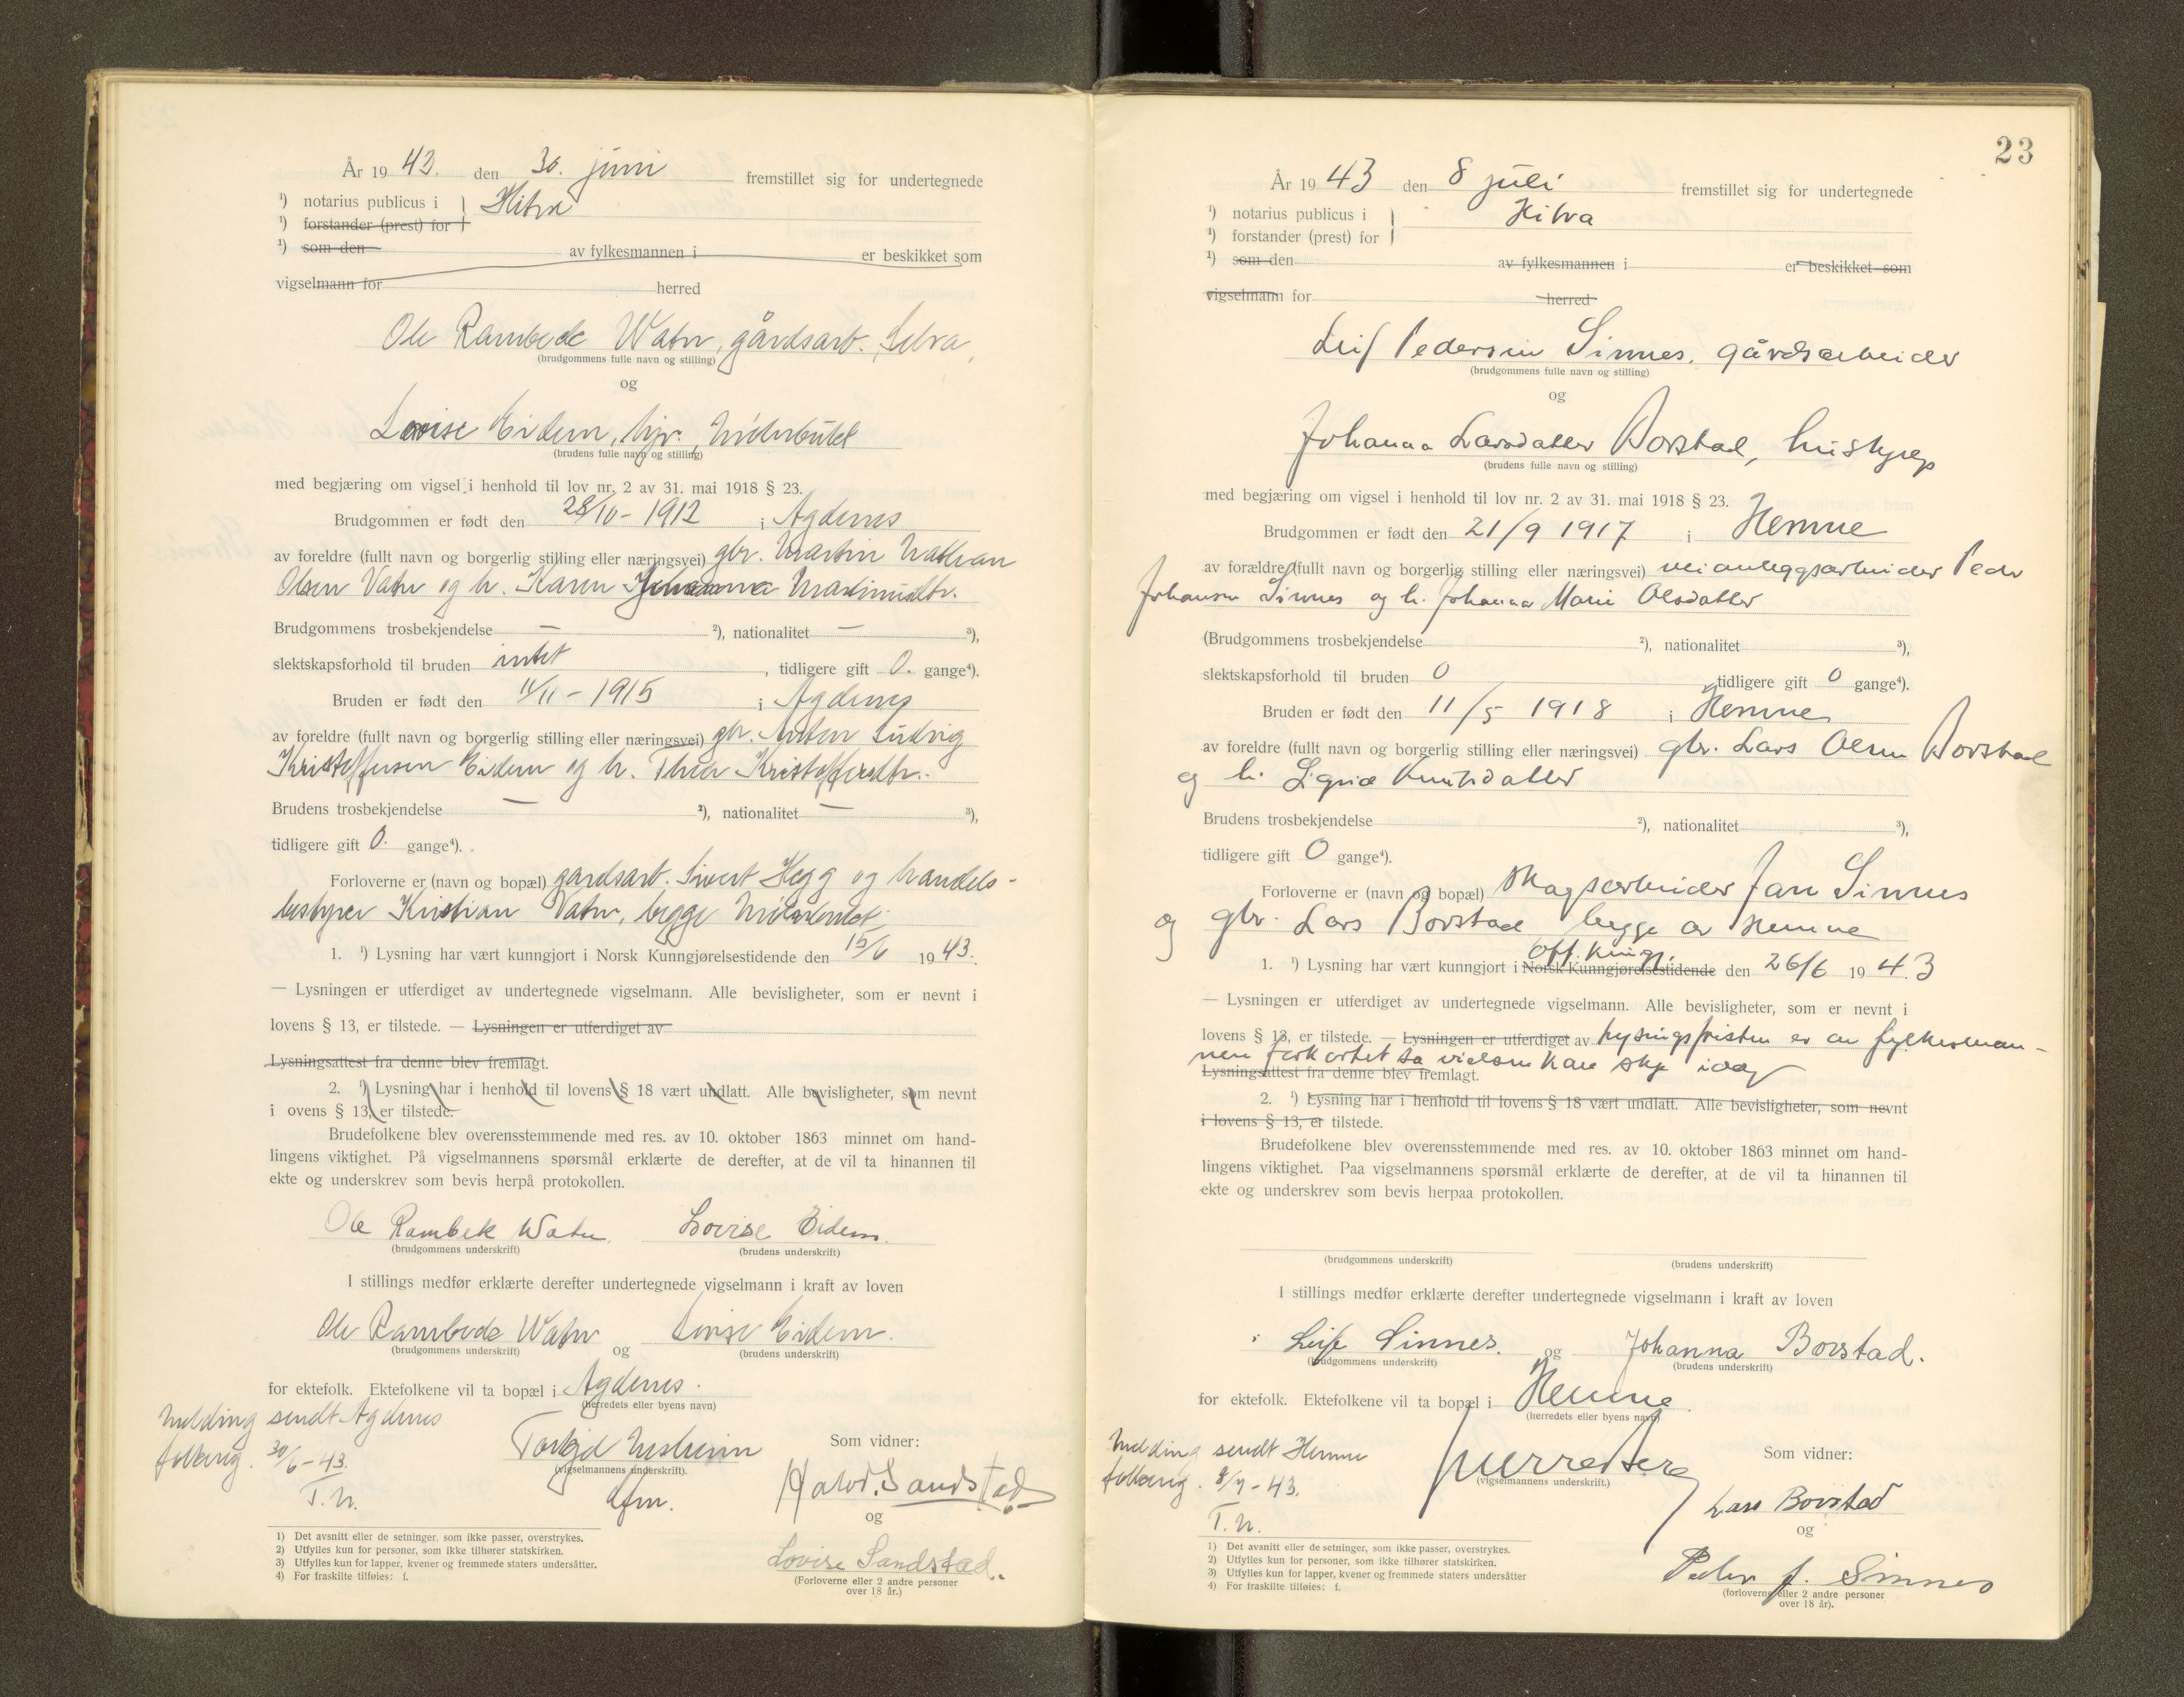 År 1943. den 30. juni fremstillet sig for undertegnede
¹) notarius publicus i } Hitra
¹) forstander (prest) for
¹) som den av fylkesmannen i er beskikket som
vigselmann for herred
Ole Rambede Watn, gårdsarb. Selva,
(brudgommens fulle navn og stilling)
og
Lovise Eidem, hjv.,
(brudens fulle navn og stilling)
med begjæring om vigsel i henhold til lov nr. 2 av 31. mai 1918 § 23.
Brudgommen er født den 28/10 - 1912 i Agdenes
av foreldre (fullt navn og borgerlig stilling eller næringsvei) gbr. Martin Nathan
Olsen Vatn og h. Karen Johanna Martinusdtr.
Brudgommens trosbekjendelse — ²), nationalitet — ³),
slektskapsforhold til bruden intet, tidligere gift 0. gange⁴).
Bruden er født den 11/11 - 1915 i Agdenes
av foreldre (fullt navn og borgerlig stilling eller næringsvei) gbr. Anton Ludvig
Kristoffersen Eidem og h. Thea Kristoffersdtr.
Brudens trosbekjendelse — ²), nationalitet — ³),
tidligere gift 0. gange⁴).
Forloverne er (navn og bopæl) gardsarb. Sivert Hegg og handels-
bestyrer Kristian Vatn, begge
1. ¹) Lysning har vært kunngjort i Norsk Kunngjørelsestidende den 15/6 1943.
— Lysningen er utferdiget av undertegnede vigselmann. Alle bevisligheter, som er nevnt i
lovens § 13, er tilstede. — Lysningen er utferdiget av
Lysningsattest fra denne blev fremlagt.
2. ¹) Lysning har i henhold til lovens § 18 vært undlatt. Alle bevisligheter, som nevnt
i ovens § 13, er tilstede.
Brudefolkene blev overensstemmende med res. av 10. oktober 1863 minnet om hand-
lingens viktighet. På vigselmannens spørsmål erklærte de derefter, at de vil ta hinannen til
ekte og underskrev som bevis herpå protokollen.
Ole Rambek Watn. Lovise Eidem.
(brudgommens underskrift) (brudens underskrift)
I stillings medfør erklærte derefter undertegnede vigselmann i kraft av loven
Ole Rambede Watn og Lovise Eidem.
(brudgommens underskrift) (brudens underskrift)
for ektefolk. Ektefolkene vil ta bopæl i Agdenes.
(herredets eller byens navn)
Melding sendt Agdenes
folkereg. 30/6-43.
T.N.
Torkjel Nesheim
(vigselmannens underskrift).
dfm.
Som vidner:
Halvd. Sandstad
og
Lovise Sandstad.
(Forloverne eller 2 andre personer
over 18 år.)
1) Det avsnitt eller de setninger, som ikke passer, overstrykes.
2) Utfylles kun for personer, som ikke tilhører statskirken.
3) Utfylles kun for lapper, kvener og fremmede staters undersåtter.
4) For fraskilte tilføies: f.
23
År 1943 den 8 juli fremstillet sig for undertegnede
¹) notarius publicus i } Hitra
¹) forstander (prest) for
¹) som den av fylkesmannen i er beskikket som
vigselmann for herred
Leif Pedersen Sinnes, gårdsarbeider
(brudgommens fulle navn og stilling)
og
Johanna Larsdatter Borstad, hushjelp
(brudens fulle navn og stilling)
med begjæring om vigsel i henhold til lov nr. 2 av 31. mai 1918 § 23.
Brudgommen er født den 21/9 1917 i Hemne
av forældre (fullt navn og borgerlig stilling eller næringsvei) veianleggsarbeider Peder
Johansen Sinnes og h. Johanna Marie Olsdatter
(Brudgommens trosbekjendelse ²), nationalitet ³),
slektskapsforhold til bruden 0 tidligere gift 0 gange⁴).
Bruden er født den 11/5 1918 i Hemne
av foreldre (fullt navn og borgerlig stilling eller næringsvei) gbr. Lars Olsen Borstad
og h. Knutsdatter
Brudens trosbekjendelse ²), nationalitet ³),
tidligere gift 0 gange⁴).
Forloverne er (navn og bopæl) skogsarbeider Jan Sinnes
og gbr. Lars Borstad begge av Hemne
off. kungj.
1. ¹) Lysning har vært kunngjort i Norsk Kunngjørelsestidende den 26/6 1943
— Lysningen er utferdiget av undertegnede vigselmann. Alle bevisligheter, som er nevnt i
lovens § 13, er tilstede. — Lysningen er utferdiget av Lysningsfristen er av fylkesman-
nen forkortet så vielsen kan skje idag
Lysningsattest fra denne blev fremlagt.
2. ¹) Lysning har i henhold til lovens § 18 vært undlatt. Alle bevisligheter, som nevnt
i lovens § 13, er tilstede.
Brudefolkene blev overensstemmende med res. av 10. oktober 1863 minnet om hand-
lingens viktighet. Paa vigselmannens spørsmål erklærte de derefter, at de vil ta hinannen til
ekte og underskrev som bevis herpaa protokollen.
(brudgommens underskrift) (brudens underskrift)
I stillings medfør erklærte derefter undertegnede vigselmann i kraft av loven
Leif Sinnes. og Johanna Borstad.
(brudgommens underskrift) (brudens underskrift)
for ektefolk. Ektefolkene vil ta bopæl i Hemne
(herredets eller byens navn)
Melding sendt Hemne
folkereg. 8/7-43.
T.N.
(vigselmannens underskrift.)
Som vidner:
Lars Borstad
og
Peder J. Sinnes
(forloverne eller 2 andre personer
over 18 år).
1) Det avsnitt eller de setninger, som ikke passer, overstrykes.
2) Utfylles kun for personer, som ikke tilhører statskirken.
3) Utfylles kun for lapper, kvener og fremmede staters undersåtter
4) For fraskilte tilføies: f.